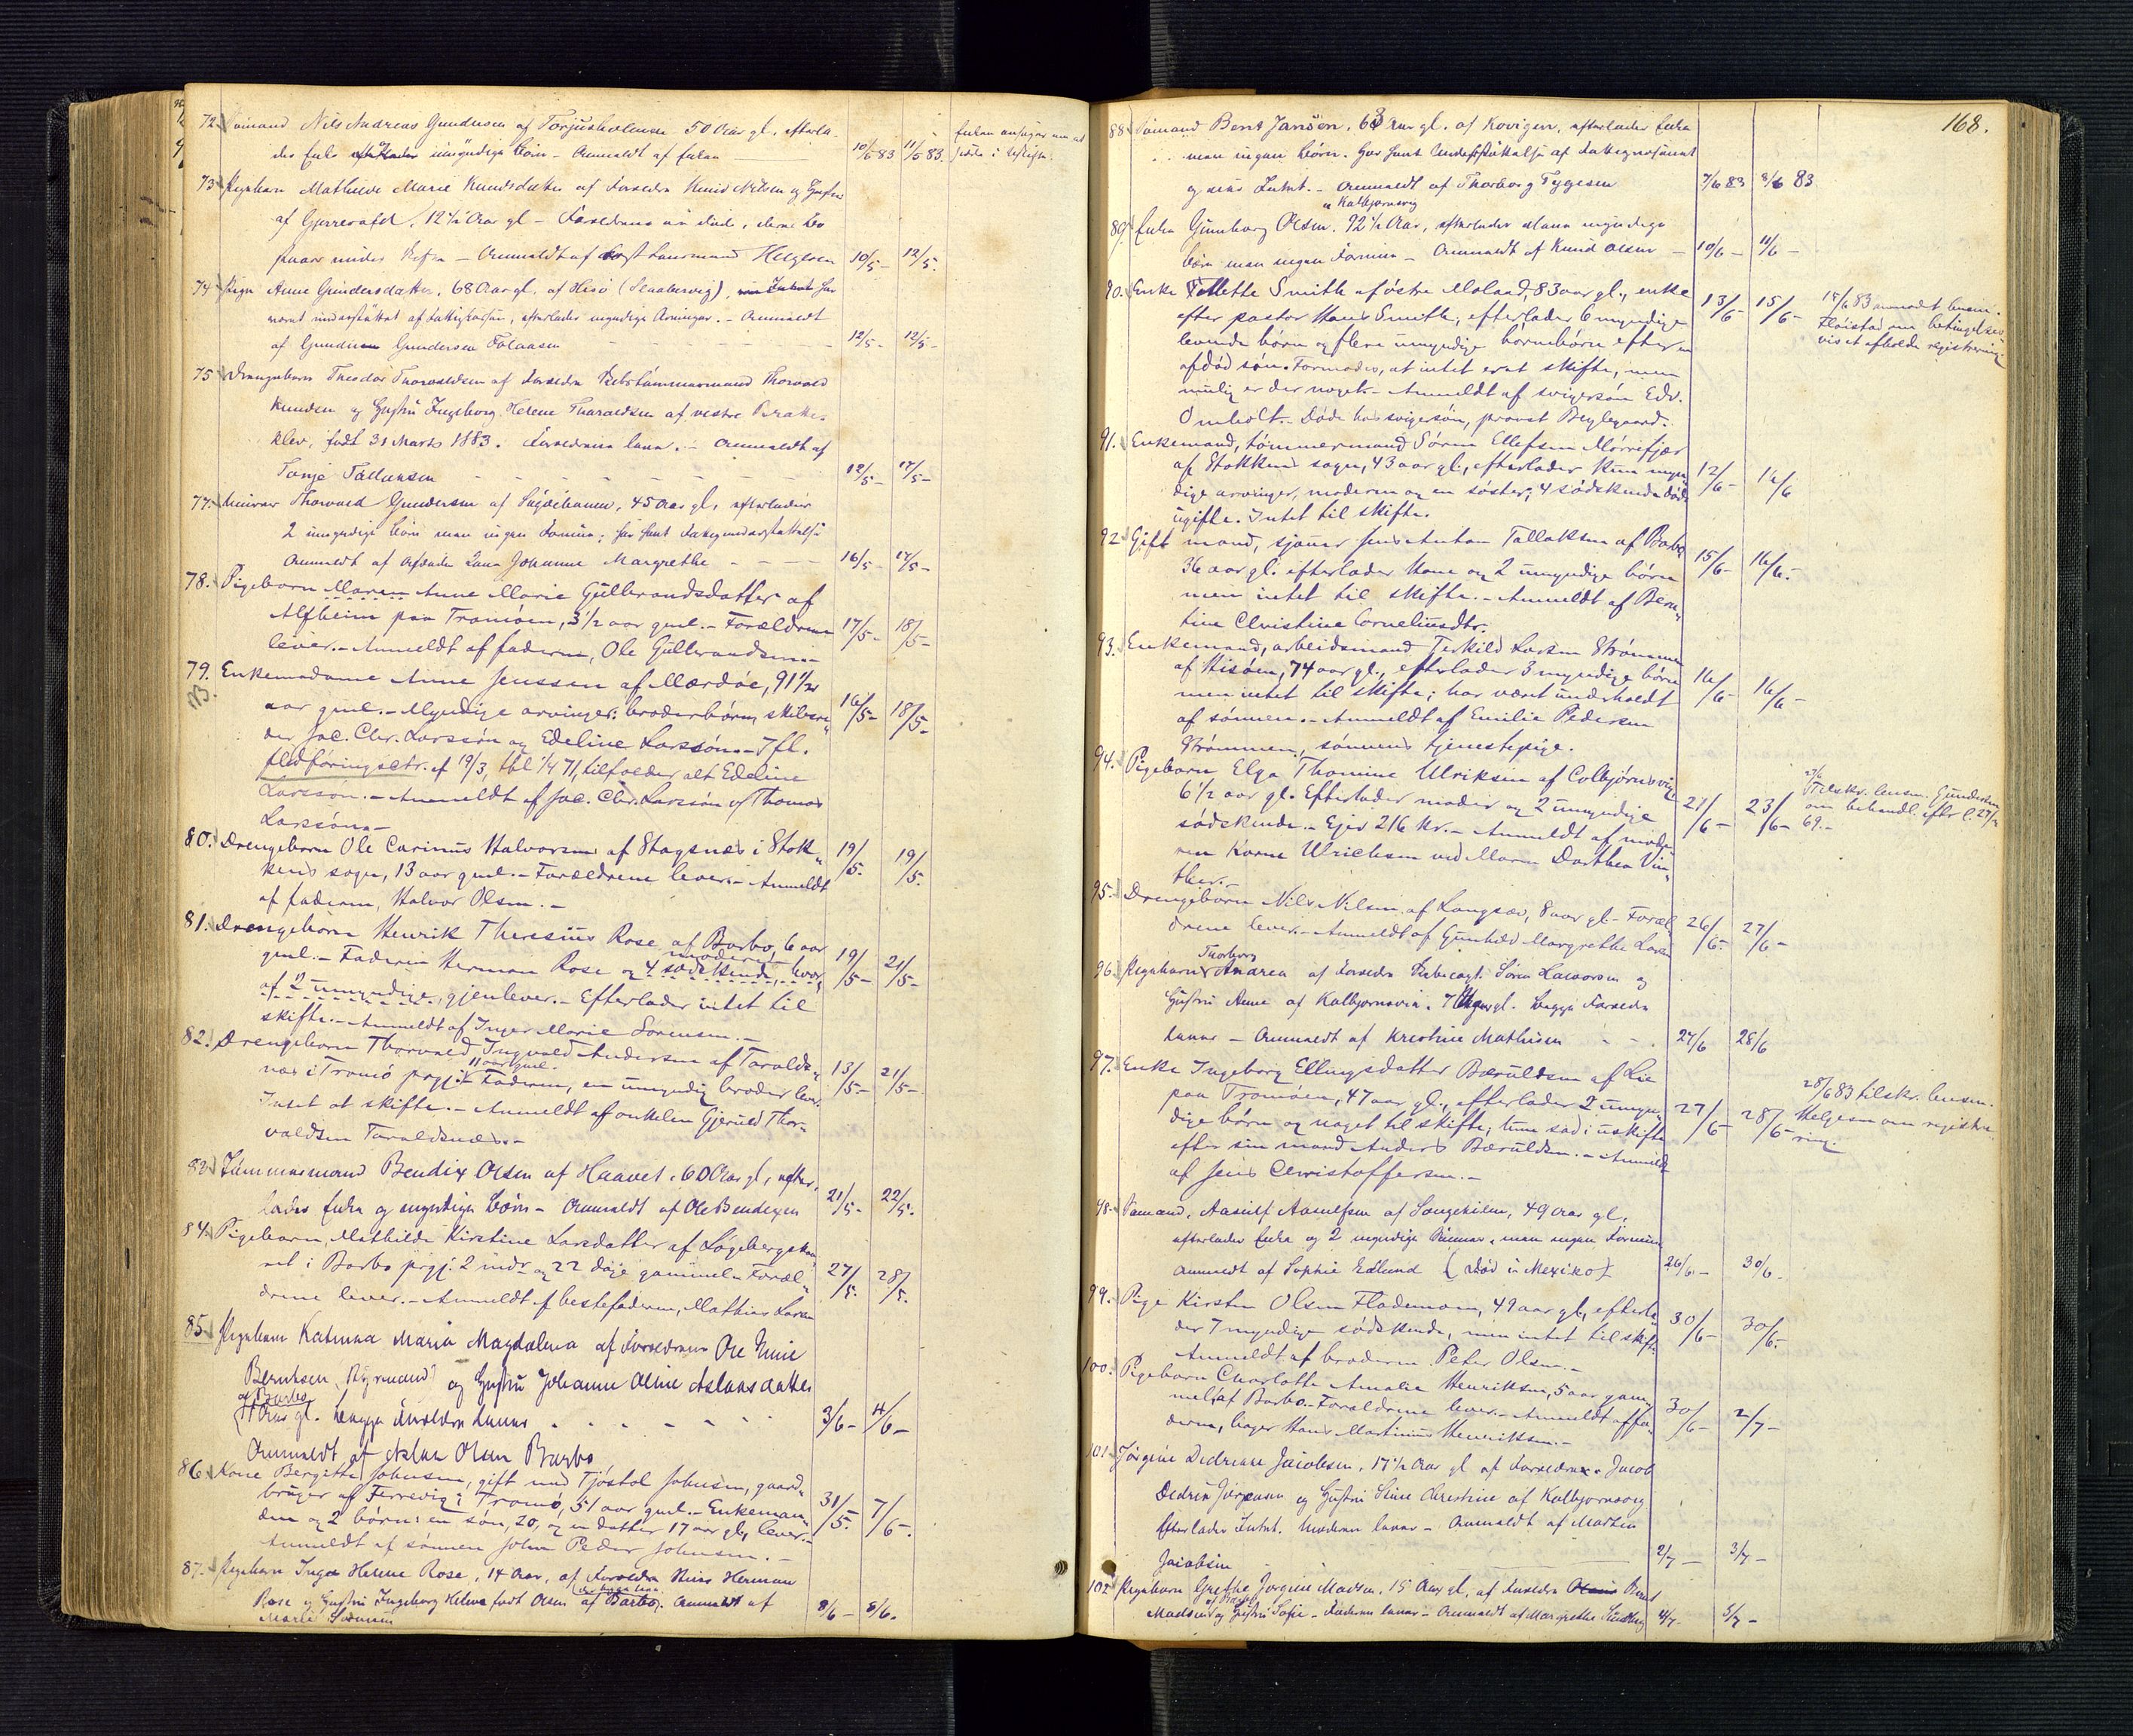 72. Sømand Nils Andreas Gundersen af Torjusholmen 50 Aar gl. efterla-
der Enke umyndige børn - Anmeldt af Enken 10/5 83 11/5 83.
73. Pigebarn Mathilde Marie Knudsdatter af Forældre Knud Nilsen og Hustru
af Gjerrevold, 12 1/2 Aar gl - Forældrene
- Anmeldt af Lensmand Helgesen 10/5 - 12/5.
74 Pige Anne Gundersdatter, 68 Aar gl. af Hisø
været understøttet af Fattigkassen, efterlader myndige Arvinger. - Anmeldt
af Gunder Gundersen 12/5 - 12/5 -
75 Drengebarn Theodor Thorvaldsen af Forældre Skibstømmermand Thorvald
Knudsen og Hustru Ingeborg Helene Tharaldsen af vestre Brække-
klev, født 31 Marts 1883. Forældrene lever. - Anmeldt af
Tonje Tallaksen 12/5 - 17/5 -
77. Thorvald Gundersen af 45 Aar gl, efterlader
2 umyndige børn men ingen Formue; har havt Fattigunderstøttelse
Anmeldt af Afdødes Kone Johanne Margrethe 16/5 - 17/5 -
78. Pigebarn Maren Anne Marie Gulbrandsdatter af
Alfheim paa Tromøen, 3 1/2 aar gml. - Forældrene 17/5 - 18/5 -
lever. - Anmeldt af faderen, Ole Gulbrandsen. -
79. Enkemadame Anne Jenssen af Mærdøe, 91 1/2
aar gml. - Myndige arvinger: broderbørn, skibsre- 16/5 - 18/5 -
der Jac. Chr. Larssøn og Edeline Larssøn. - Ifl.
fledføringsctr. af 19/3, tbl 1/4 71, tilfalder alt Edeline
Larssøn. - Anmeldt af Jac. Chr. Larssøn og Thomas
Larssøn. -
80. Drengebarn Ole Carinus Halvorsen af Stagsnæs i Stok- 19/5. 19/5.
kens sogn, 13 aar gml. - Forældrene lever. - Anmeldt
af faderen, Halvor Olsen. -
81. Drengebarn Henrik Theresius Rose af Barbo, 6 aar
gml. - Faderen Herman Rose og moderen 4 sødskende, hvor- 19/5 - 21/5 -
af 2 umyndige, gjenlever. - Efterlader intet til
skifte. - Anmeldt af Inger Marie Sørensen. -
82. Drengebarn Thorvald Ingvald Andersen af Taralds-
næs i Tromø prgj. 11 aar gml. Faderen, en umyndig broder lever. 13/5 - 21/5 -
Intet at skifte. - Anmeldt af onkelen Gjeruld Thor-
valdsen Taraldsnæs. -
83 Tømmermand Bendix Olsen af Haavet, 60 Aar gl, efter-
lader Enke og myndige børn - Anmeldt af Ole Bendixen 21/5 - 22/5.
84. Pigebarn Mathilde Kirstine Larsdatter af Løgebergskar-
ret i Barbo prgj. 2 mdr og 22 dage gammel - Foræl- 27/5. 28/5.
drene lever. - Anmeldt af bestefaderen, Mathias Larsen
85. Pigebarn Katrina Maria Magdalena af Forældrene Ole
Berntsen, og Hustru Johanne Oline Aslaksdatter
af Barbo
Aar gl. begge Forældre lever 3/6 - 4/6 -
Anmeldt af Aslak Olsen Barbo
86. Kone Bergitte Johnsen, gift med Tjøstol Johnsen, gaard-
bruger af Færrevig i Tromø, 51 aar gml. - Enkeman- 31/5. 7/6 -.
den og 2 børn: en søn, 20, og en datter 17 aar gl, lever. -
Anmeldt af sønnen John Peder Johnsen. -
87. Pigebarn Inga Helene Rose, 14 Aar, af Forældre Herman
Rose og Hustru Ingeborg Helene født Olsen af Barbo. Anmeldt af 8/6 - 8/6.
Marie Sørensen
168.
88 Sømand Bent Jansen, 63 Aar gl. af Kovigen, efterlader Enke
men ingen børn. Har havt Understøttelse af Fattigvæsenet
og Intet. - Anmeldt af Thorborg Tygesen 7/6 83 8/6 83
Kalbjørnsvig
89. Enke Gunborg Olsen. 92 1/2 Aar, efterlader myndige
børn men ingen Formue - Anmeldt af Knud Olsen - 10/6 - 11/6 -
90. Enke Tollette Smith af østre Moland, 83 aar gl., enke 13/6 - 15/6 -
efter pastor Hans Smith, efterlader 6 myndige
levende børn og flere umyndige børnebørn efter en
afdød søn. Formodes, at intet er at skifte, men
mulig er der noget. - Anmeldt af svigersøn Edv.
Omholt. - Døde hos svigersøn, provst
15/6 83 anmodt lensm.
Fløistad om betingelses-
vis at afholde registrering
91. Enkemand, tømmermand Søren Ellefsen Mørefjær
af Stokkens sogn, 43 aar gl., efterlader kun myn- 12/6 - 14/6
dige arvinger, moderen og en søster; 4 sødskende døde
ugifte. Intet til skifte.
92 Gift mand, sjouer Jens Anton Tallaksen af Barbo 15/6 - 16/6. -
36 aar gl. efterlader kone og 2 umyndige børn
men intet til skifte. - Anmeldt af Bern-
tine Christine Corneliusdtr.
93. Enkemand, arbeidsmand Terkild Larsen Strømmen
af Hisøen, 74 aar gl., efterlader 3 myndige børn 14/6 - 16/6 -
men intet til skifte; har været underholdt
af sønnen. - Anmeldt af Emilie Pedersen
Strømmen, sønnens tjenestepige.
94. Pigebarn Elga Thomine Ulriksen af Colbjørnsvig
6 1/2 aar gl. Efterlader moder og 2 umyndige 21/6 - 23/6 -
sødskende. - Eier 216 Kr. - Anmeldt af mode-
ren Karen Ulrichsen ved Maren Dorthea Vin-
ther. -
Tilskr. lensm. Gundersen
om behandl. efter l. 27/
69. -
95. Drengebarn Nils Nilsen af Langsæv, 8 aar gl - Foræl- 26/6 - 27/6 -
drene lever. - Anmeldt af Gunhild Margrethe Larsen
Thorborg
96. Pigebarn Andrea af Forældre Søren Larssen og
Hustru Anne af Kalbjørnsvig. 7 Aar gl. begge Forældre
lever - Anmeldt af Krestine Mathisen 27/6 28/6
97. Enke Ingeborg Ellingsdatter Bæruldsen af Lie
paa Tromøen, 47 aar gl., efterlader 2 umyn- 27/6 - 28/6 -
dige børn og noget til skifte; hun sad i uskifte
efter sin mand Anders Bæruldsen. - Anmeldt
af Jens Christoffersen. -
28/6 83 tilskr. lensm.
Helgesen om registre-
ring.
98. Sømand, Aasulf Aasulfsen af Songekilen, 49 Aar gl,
efterlader Enke og 2 myndige Sønner, men ingen Formue
Anmeldt af Sophie Edlund (død i Mexiko) 26/6 - 30/6 -
99. Pige Kirsten Olsen Flademoen, 49 aar gl., efterla- 30/6 - 30/6 -.
der 7 myndige sødskende, men intet til skifte
Anmeldt af broderen Peter Olsen. -
100. Pigebarn Charlotte Amalie Henriksen, 5 aar gam-
mel, af Barbo. - Forældrene lever. - Anmeldt af fa- 30/6 - 2/7 -
deren, bager Hans Martinius Henriksen. -
101. Jørgine Dedrikke Jacobsen, 17 1/2 Aar gl af Forældre Jacob
Dedrik Jørgensen og Hustru Christine af Kalbjørnsvig
Efterlader Intet. Moderen lever - Anmeldt af Marten
Jacobsen 2/7 - 3/7 -
102 Pigebarn Grethe Jørgine Madsen, 15 Aar gl, af Forældre Bernt
Madsen og Hustru Sofie - Faderen lever - Anmeldt af Margrethe 4/7 - 5/7 -